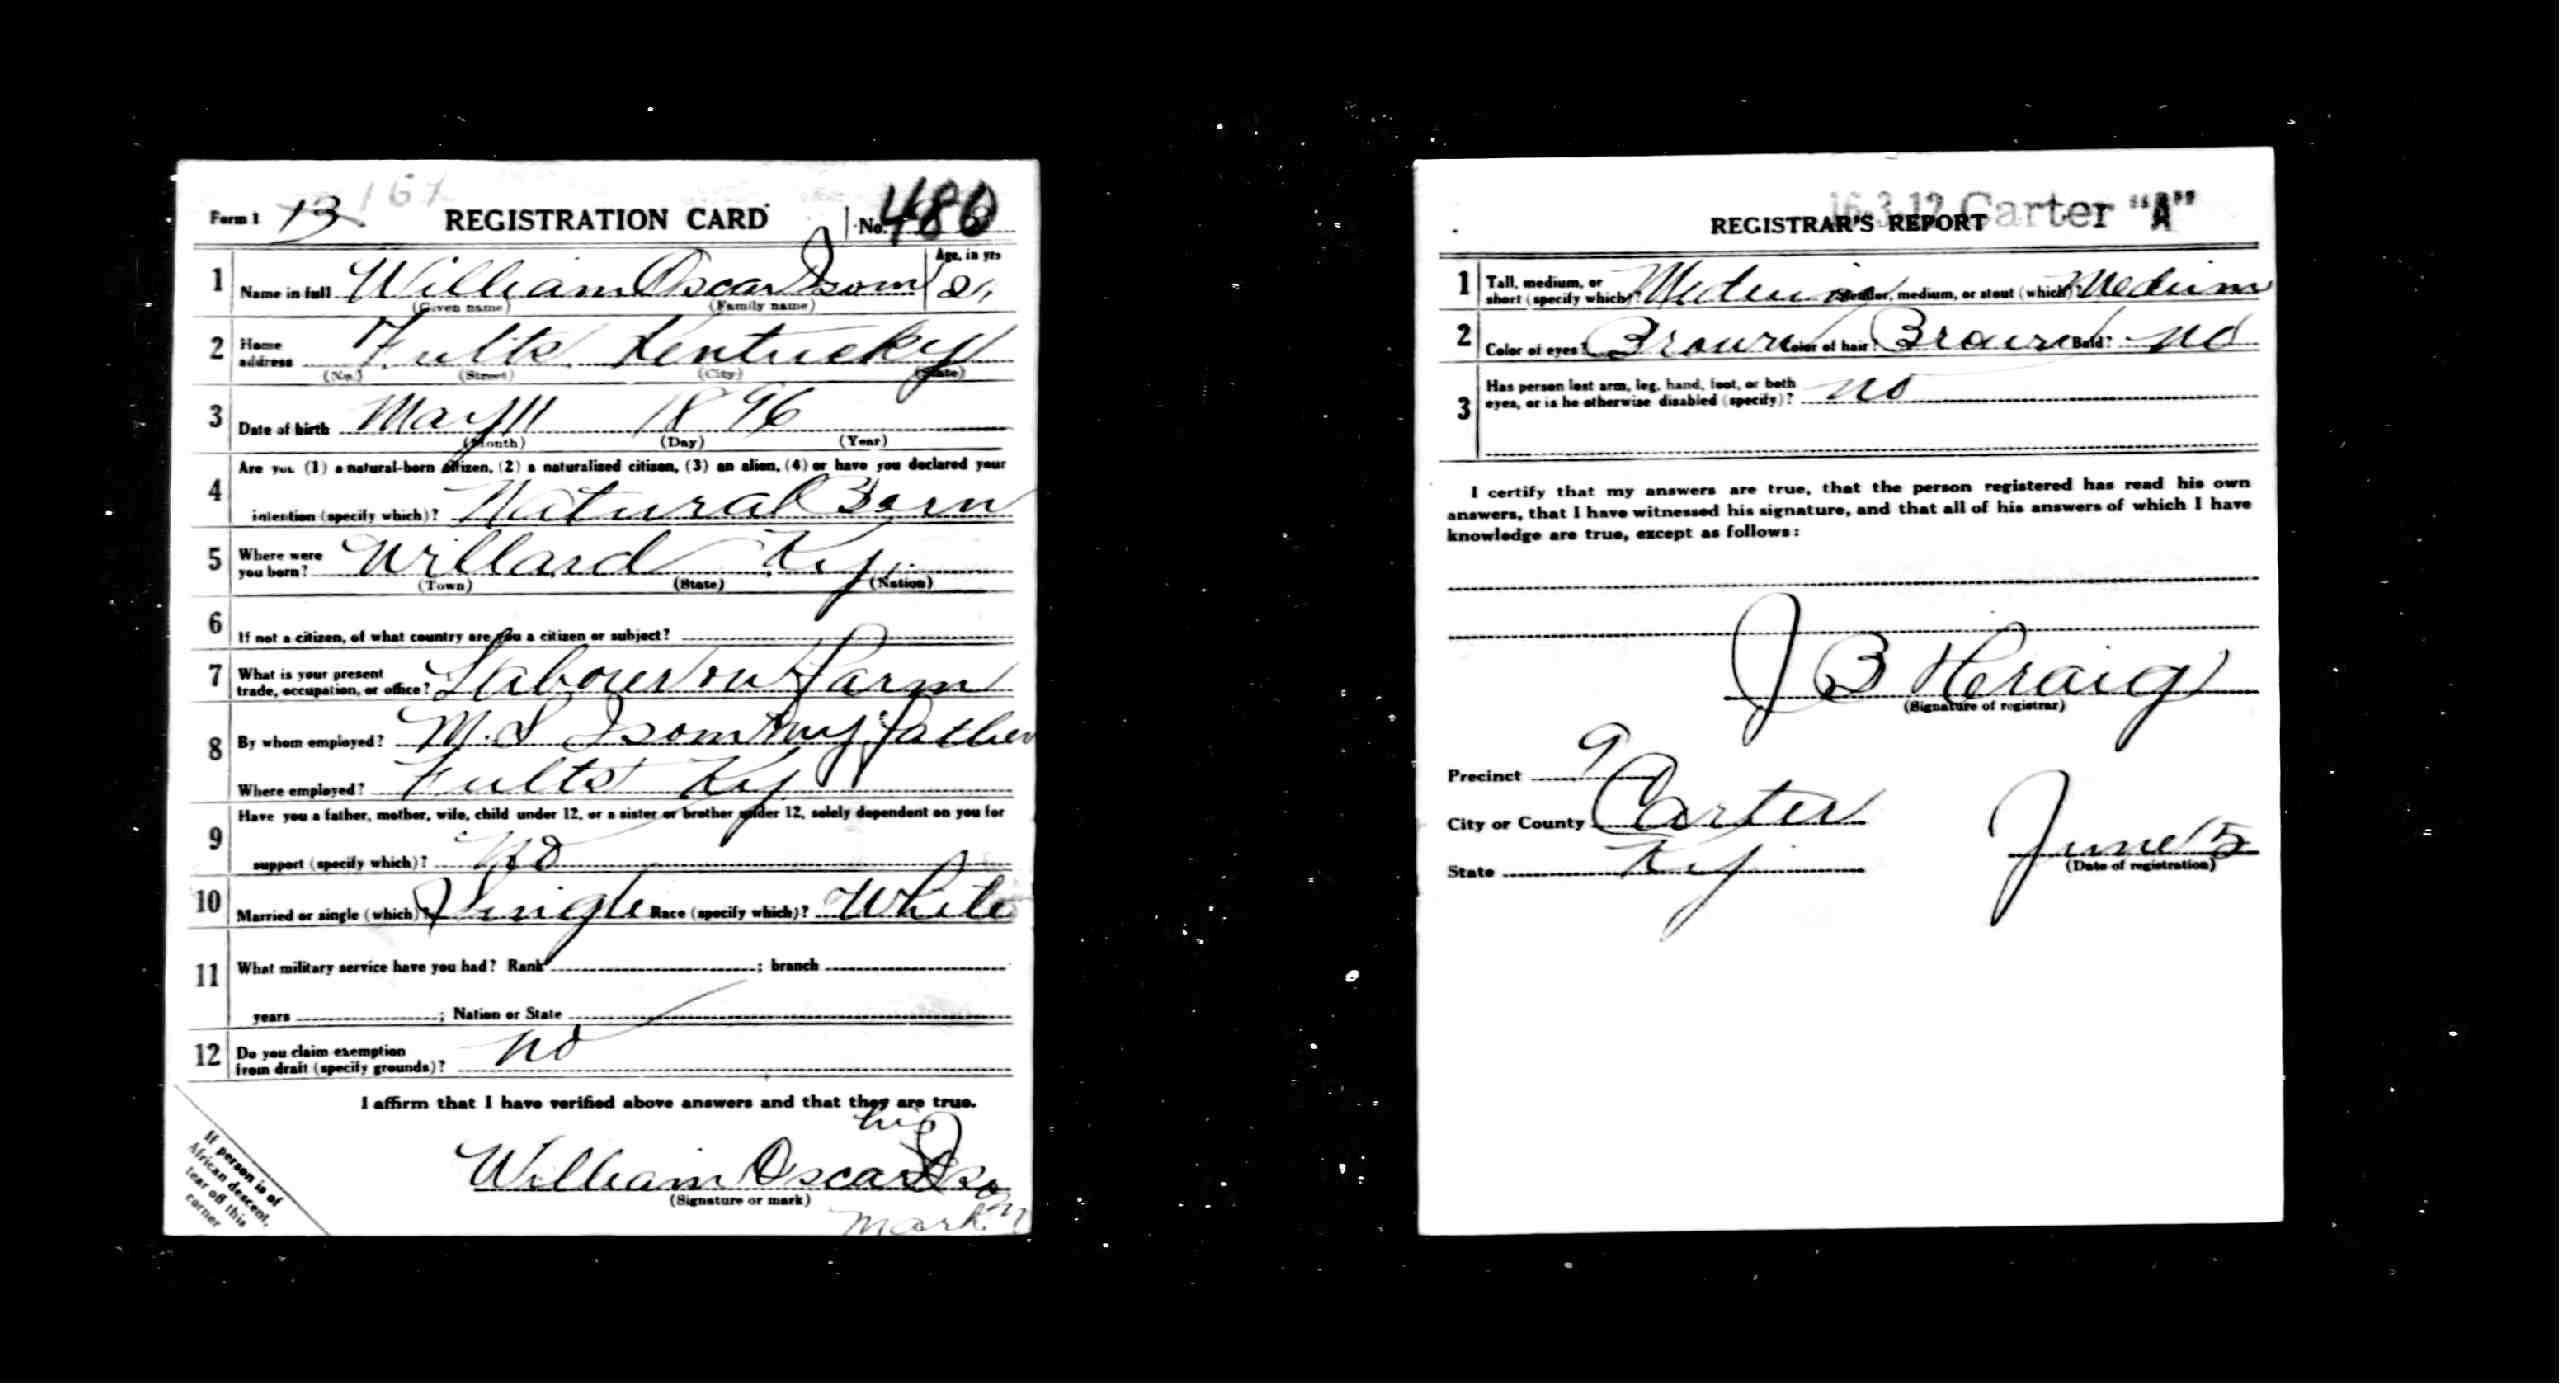 Form 1 13 167 REGISTRATION CARD No. 480
1 Name in full William Oscar Isom Age, in yrs 21
(Given name) (Family name)
2 Home address Fults Kentucky
(No.) (Street) (City) (State)
3 Date of birth May 11 1896
(Month) (Day) (Year)
4 Are you (1) a natural-born citizen, (2) a naturalized citizen, (3) an alien, (4) or have you declared your
intention (specify which)? Natural Born
5 Where were you born? Willard Ky.
(Town) (State) (Nation)
6 If not a citizen, of what country are you a citizen or subject?
7 What is your present trade, occupation, or office? Labour on farm
8 By whom employed? M.S Isom my father
Where employed? Fults Ky
9 Have you a father, mother, wife, child under 12, or a sister or brother under 12, solely dependent on you for
support (specify which)? No
10 Married or single (which)? Single Race (specify which)? White
11 What military service have you had? Rank ; branch
years ; Nation or State
12 Do you claim exemption from draft (specify grounds)? no
I affirm that I have verified above answers and that they are true.
his
William Oscar Isom
(Signature or mark)
mark
If person is of
African descent,
tear off this
corner
16-3-12 Carter "A"
REGISTRAR'S REPORT
1 Tall, medium, or short (specify which)? Medium Slender, medium, or stout (which)? Medium
2 Color of eyes? Brown Color of hair? Brown Bald? no
3 Has person lost arm, leg, hand, foot, or both
eyes, or is he otherwise disabled (specify)? no
I certify that my answers are true, that the person registered has read his own
answers, that I have witnessed his signature, and that all of his answers of which I have
knowledge are true, except as follows:
J B
(Signature of registrar)
Precinct 9
City or County Carter
State Ky
June 5
(Date of registration)